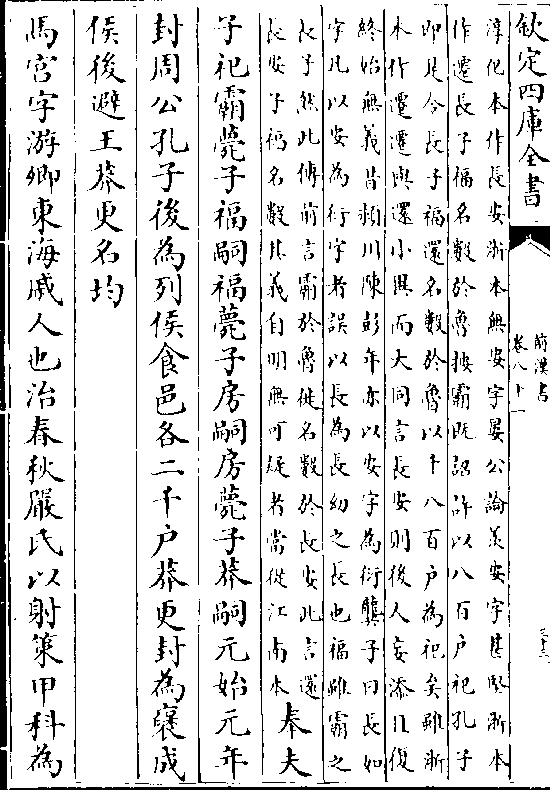 欽定四庫全書
前漢書
卷八十一
淳化本作長安浙本無安字晏公論羨安字甚堅浙本
作遷長子福名數於魯按霸既詔許以八百户祀孔子
即是今長子福還名數於魯以千八百户為祀矣雖浙
本作遷遷與還小異而大同言長安則後人妄添但復
終始無義昔潁川陳彭年亦以安字為衍龔子曰長如
字凡以安為衍字者誤以長為長幼之長也福雖霸之
長子然此傳前言霸於魯徙名數於長安此言還
長安子福名數其義自明無可疑者當從江南本
奉夫
子祀霸薨子福嗣福薨子房嗣房薨子莽嗣元始元年
封周公孔子後為列侯食邑各二千户莽更封為襃成
侯後避王莽更名均
馬宮字游卿東海戚人也治春秋嚴氏以射策甲科為